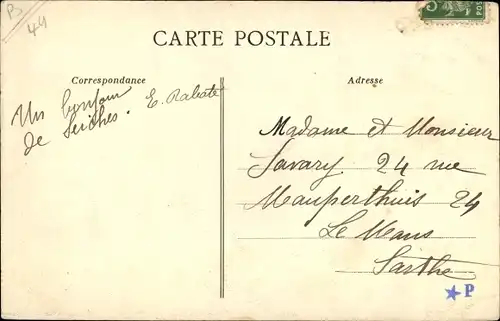 B
44
CARTE POSTALE
Correspondance
Adresse
Un bonjour
de Seiches. E. Rabaté
Madame et Monsieur
Savary 24 rue
Mauperthuis 24
Le Mans
Sarthe
★P